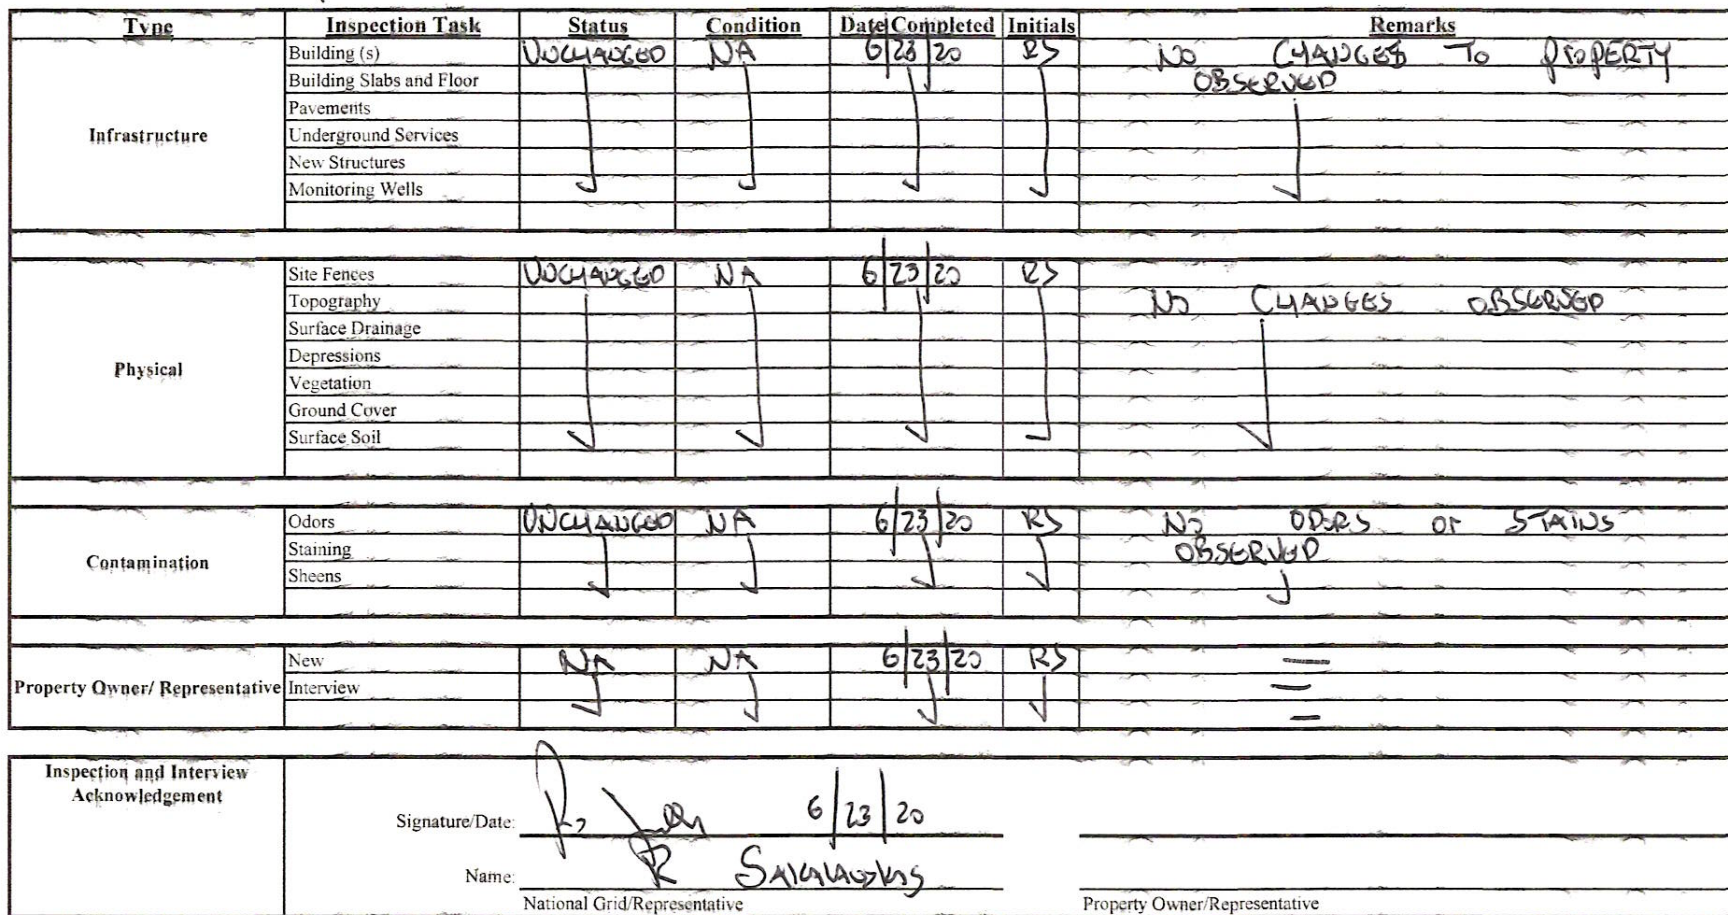 Type Inspection Task Status Condition Date Completed Initials Remarks
Infrastructure
Building (s) UNCHANGED NA 6/23/20 RS NO CHANGES TO PROPERTY
Building Slabs and Floor OBSERVED
Pavements
Underground Services
New Structures
Monitoring Wells
Physical
Site Fences UNCHANGED NA 6/23/20 RS
Topography NO CHANGES OBSERVED
Surface Drainage
Depressions
Vegetation
Ground Cover
Surface Soil
Contamination
Odors UNCHANGED NA 6/23/20 RS NO ODORS or STAINS
Staining OBSERVED
Sheens
Property Owner/ Representative
New NA NA 6/23/20 RS —
Interview —
—
Inspection and Interview
Acknowledgement
Signature/Date: 6/23/20
Name: R SAKALAUSKAS
National Grid/Representative Property Owner/Representative